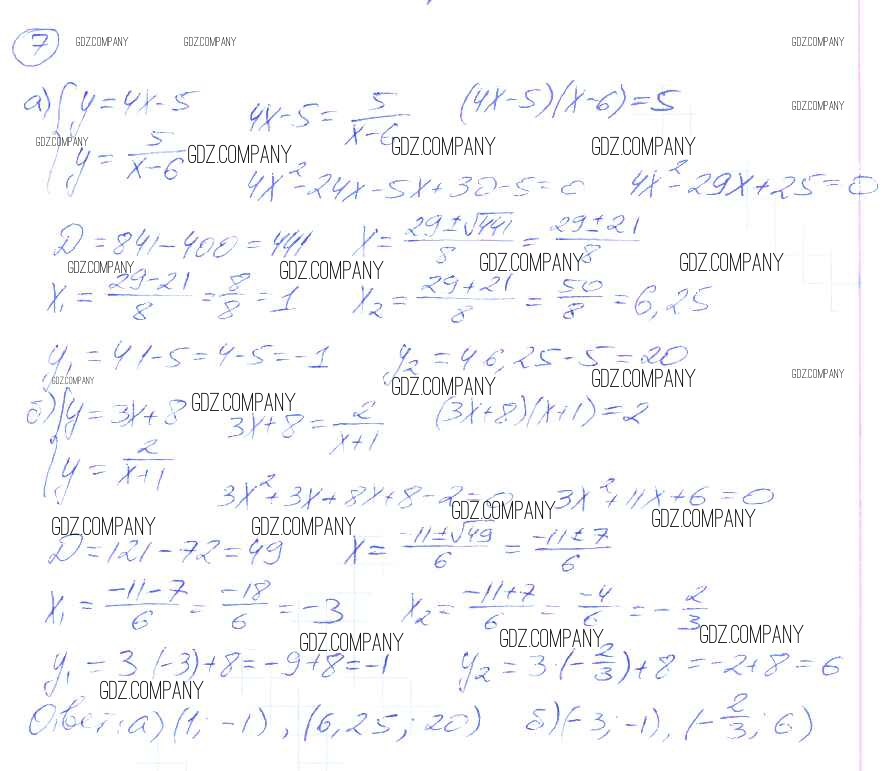 7 GDZ.COMPANY GDZ.COMPANY GDZ.COMPANY
а) { y = 4x - 5   4x - 5 = 5/(x-6)   (4x-5)(x-6) = 5 GDZ.COMPANY
y = 5/(x-6) GDZ.COMPANY GDZ.COMPANY GDZ.COMPANY GDZ.COMPANY
4x² - 24x - 5x + 30 - 5 = 0   4x² - 29x + 25 = 0
D = 841 - 400 = 441   x = (29 ± √441)/8 = (29 ± 21)/8
GDZ.COMPANY GDZ.COMPANY GDZ.COMPANY GDZ.COMPANY
x₁ = (29-21)/8 = 8/8 = 1   x₂ = (29+21)/8 = 50/8 = 6,25
y₁ = 4 1 - 5 = 4 - 5 = -1   y₂ = 4 6,25 - 5 = 20
GDZ.COMPANY GDZ.COMPANY GDZ.COMPANY GDZ.COMPANY
б) { y = 3x + 8 GDZ.COMPANY 3x + 8 = 2/(x+1)   (3x+8)(x+1) = 2
y = 2/(x+1)
3x² + 3x + 8x + 8 - 2 = 0   3x² + 11x + 6 = 0
GDZ.COMPANY GDZ.COMPANY GDZ.COMPANY GDZ.COMPANY
D = 121 - 72 = 49   x = (-11 ± √49)/6 = (-11 ± 7)/6
x₁ = (-11-7)/6 = -18/6 = -3   x₂ = (-11+7)/6 = -4/6 = -2/3
GDZ.COMPANY GDZ.COMPANY GDZ.COMPANY
y₁ = 3 (-3) + 8 = -9 + 8 = -1   y₂ = 3·(-2/3) + 8 = -2 + 8 = 6
GDZ.COMPANY
Ответ: а) (1; -1), (6,25; 20)   б) (-3; -1), (-2/3; 6)